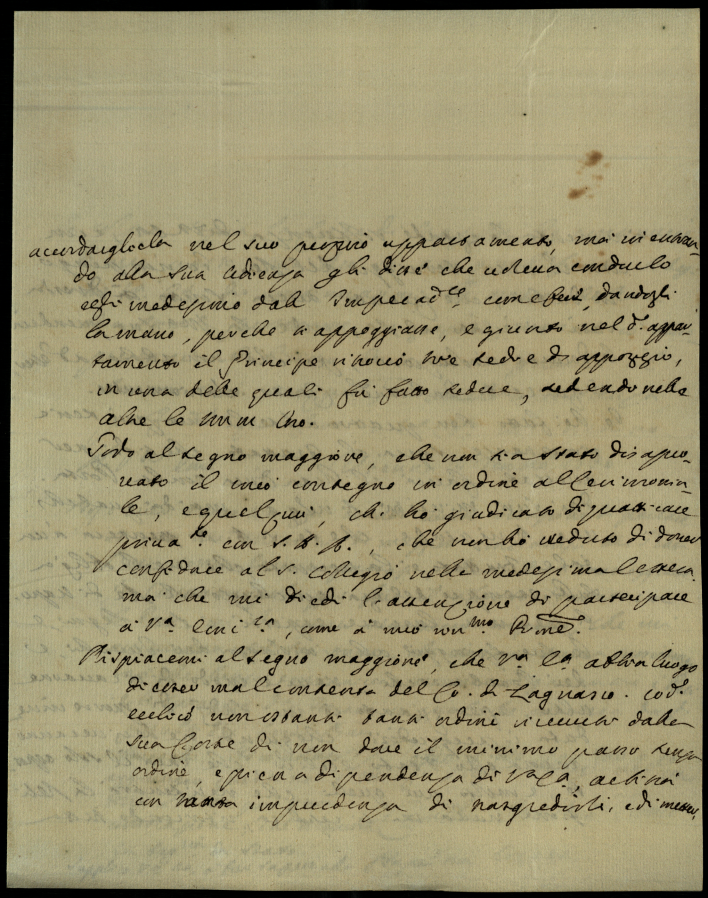 accordargliela nel suo proprio appartamento, ma in entran-
do alla sua udienza gli disse che voleva condurlo
egli medesimo dall' Imperad.ce, come fece, dandogli
la mano, perchè s'appoggiasse, e giunto nel d.o appar-
tamento il Principe ritrovò tre sedie d'appoggio,
in una delle quali fù fatto sedere, sedendo nelle
altre le MM. loro.
Godo al segno maggiore, che non sia stato disappro-
vato il mio contegno in ordine all cerimonia-
le, e quel più, che hò giudicato di
priva.te con S. A. R., che non hò creduto di dover
confidare al S. Collegio nella medesima lettera
ma che mi diedi l'attenzione di partecipare
à V.ra Emi.za, come à mio
Dispiacemi al segno maggiore, che V.ra E.a abbia luogo
di esser mal contenta del Co. di Lagnasco. cod.o
non ostanti tanti ordini ricevuti dalla
sua Corte di non dare il minimo passo senza
ordine, e piena dipendenza di V.ra E.a,
con tanta impudenza di trasgredirli, e di